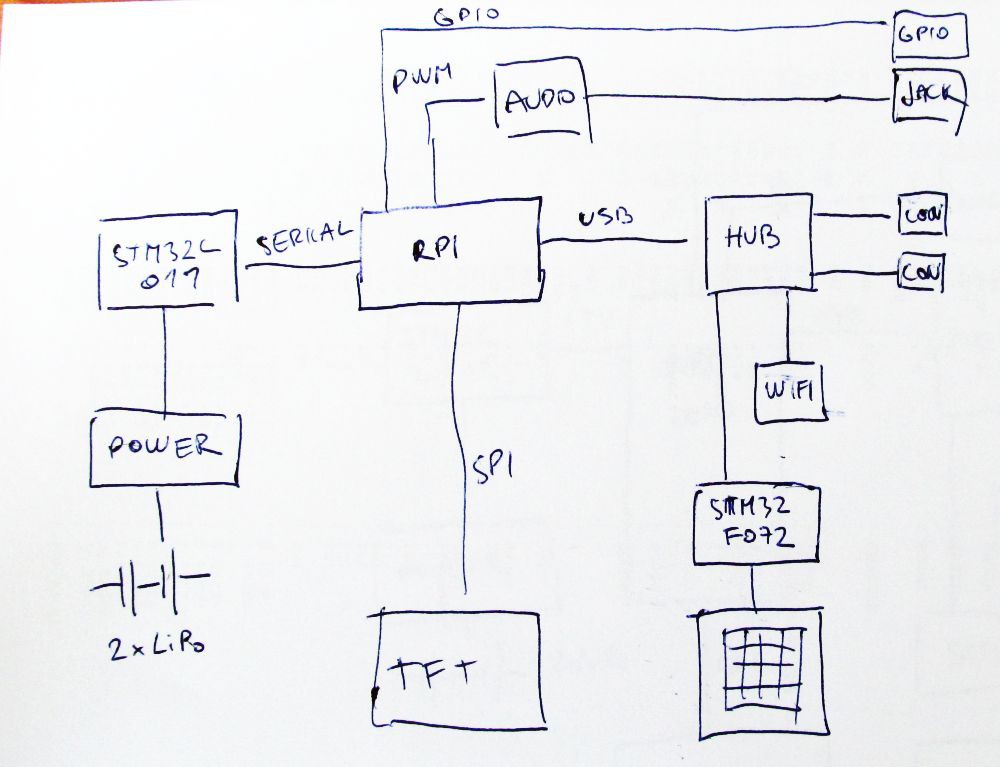 GPIO
GPIO
PWM
AUDIO
JACK
STM32L
011
SERIAL
RPI
USB
HUB
CON
CON
WIFI
POWER
SPI
STM32
F072
2xLiPo
TFT